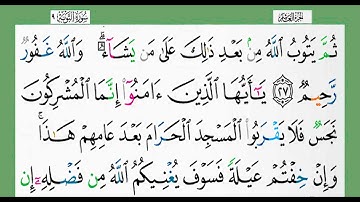 الجزء العاشر سورة التوبة ٩
ثُمَّ يَتُوبُ ٱللَّهُ مِنۢ بَعْدِ ذَٰلِكَ عَلَىٰ مَن يَشَآءُ ۗ وَٱللَّهُ غَفُورٌ
رَّحِيمٌ ٢٧ يَـٰٓأَيُّهَا ٱلَّذِينَ ءَامَنُوٓا۟ إِنَّمَا ٱلْمُشْرِكُونَ
نَجَسٌ فَلَا يَقْرَبُوا۟ ٱلْمَسْجِدَ ٱلْحَرَامَ بَعْدَ عَامِهِمْ هَـٰذَا ۚ
وَإِنْ خِفْتُمْ عَيْلَةً فَسَوْفَ يُغْنِيكُمُ ٱللَّهُ مِن فَضْلِهِۦٓ إِن